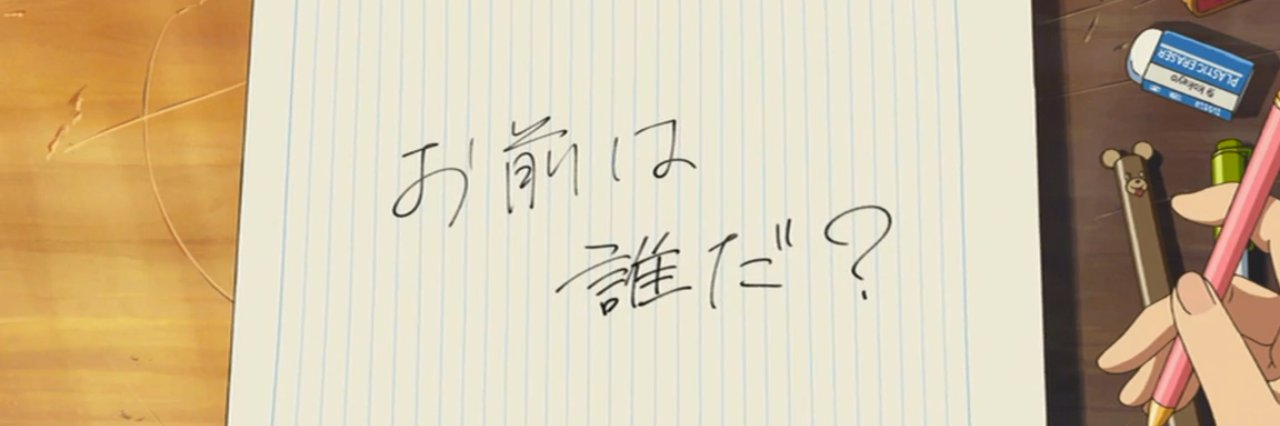 お前は
誰だ?
PLASTIC ERASER
kokeyo